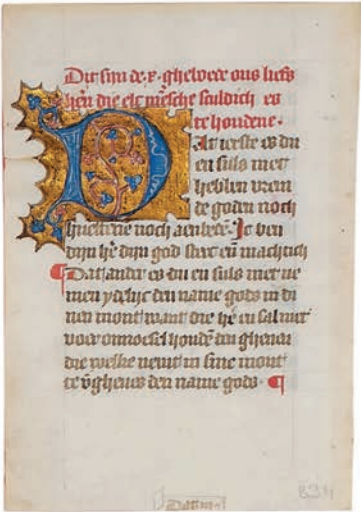 Dit sijn de .x. ghebode ons liefs
hērē die elc mēsche sculdich es
te houdene.
Dat ierste es du
en suls niet
hebben vrem
de goden noch
huerene noch aenbede. Ic ben
dijn hē dijn god sterc eñ machtich
¶ Dat ander es du en suls niet ne
men ydelijc den name gods in di
nen mont want die hē en sal niet
voer onnosel houdē den ghenen
die welke neemt in sine mont
te vgheues den name gods. ¶